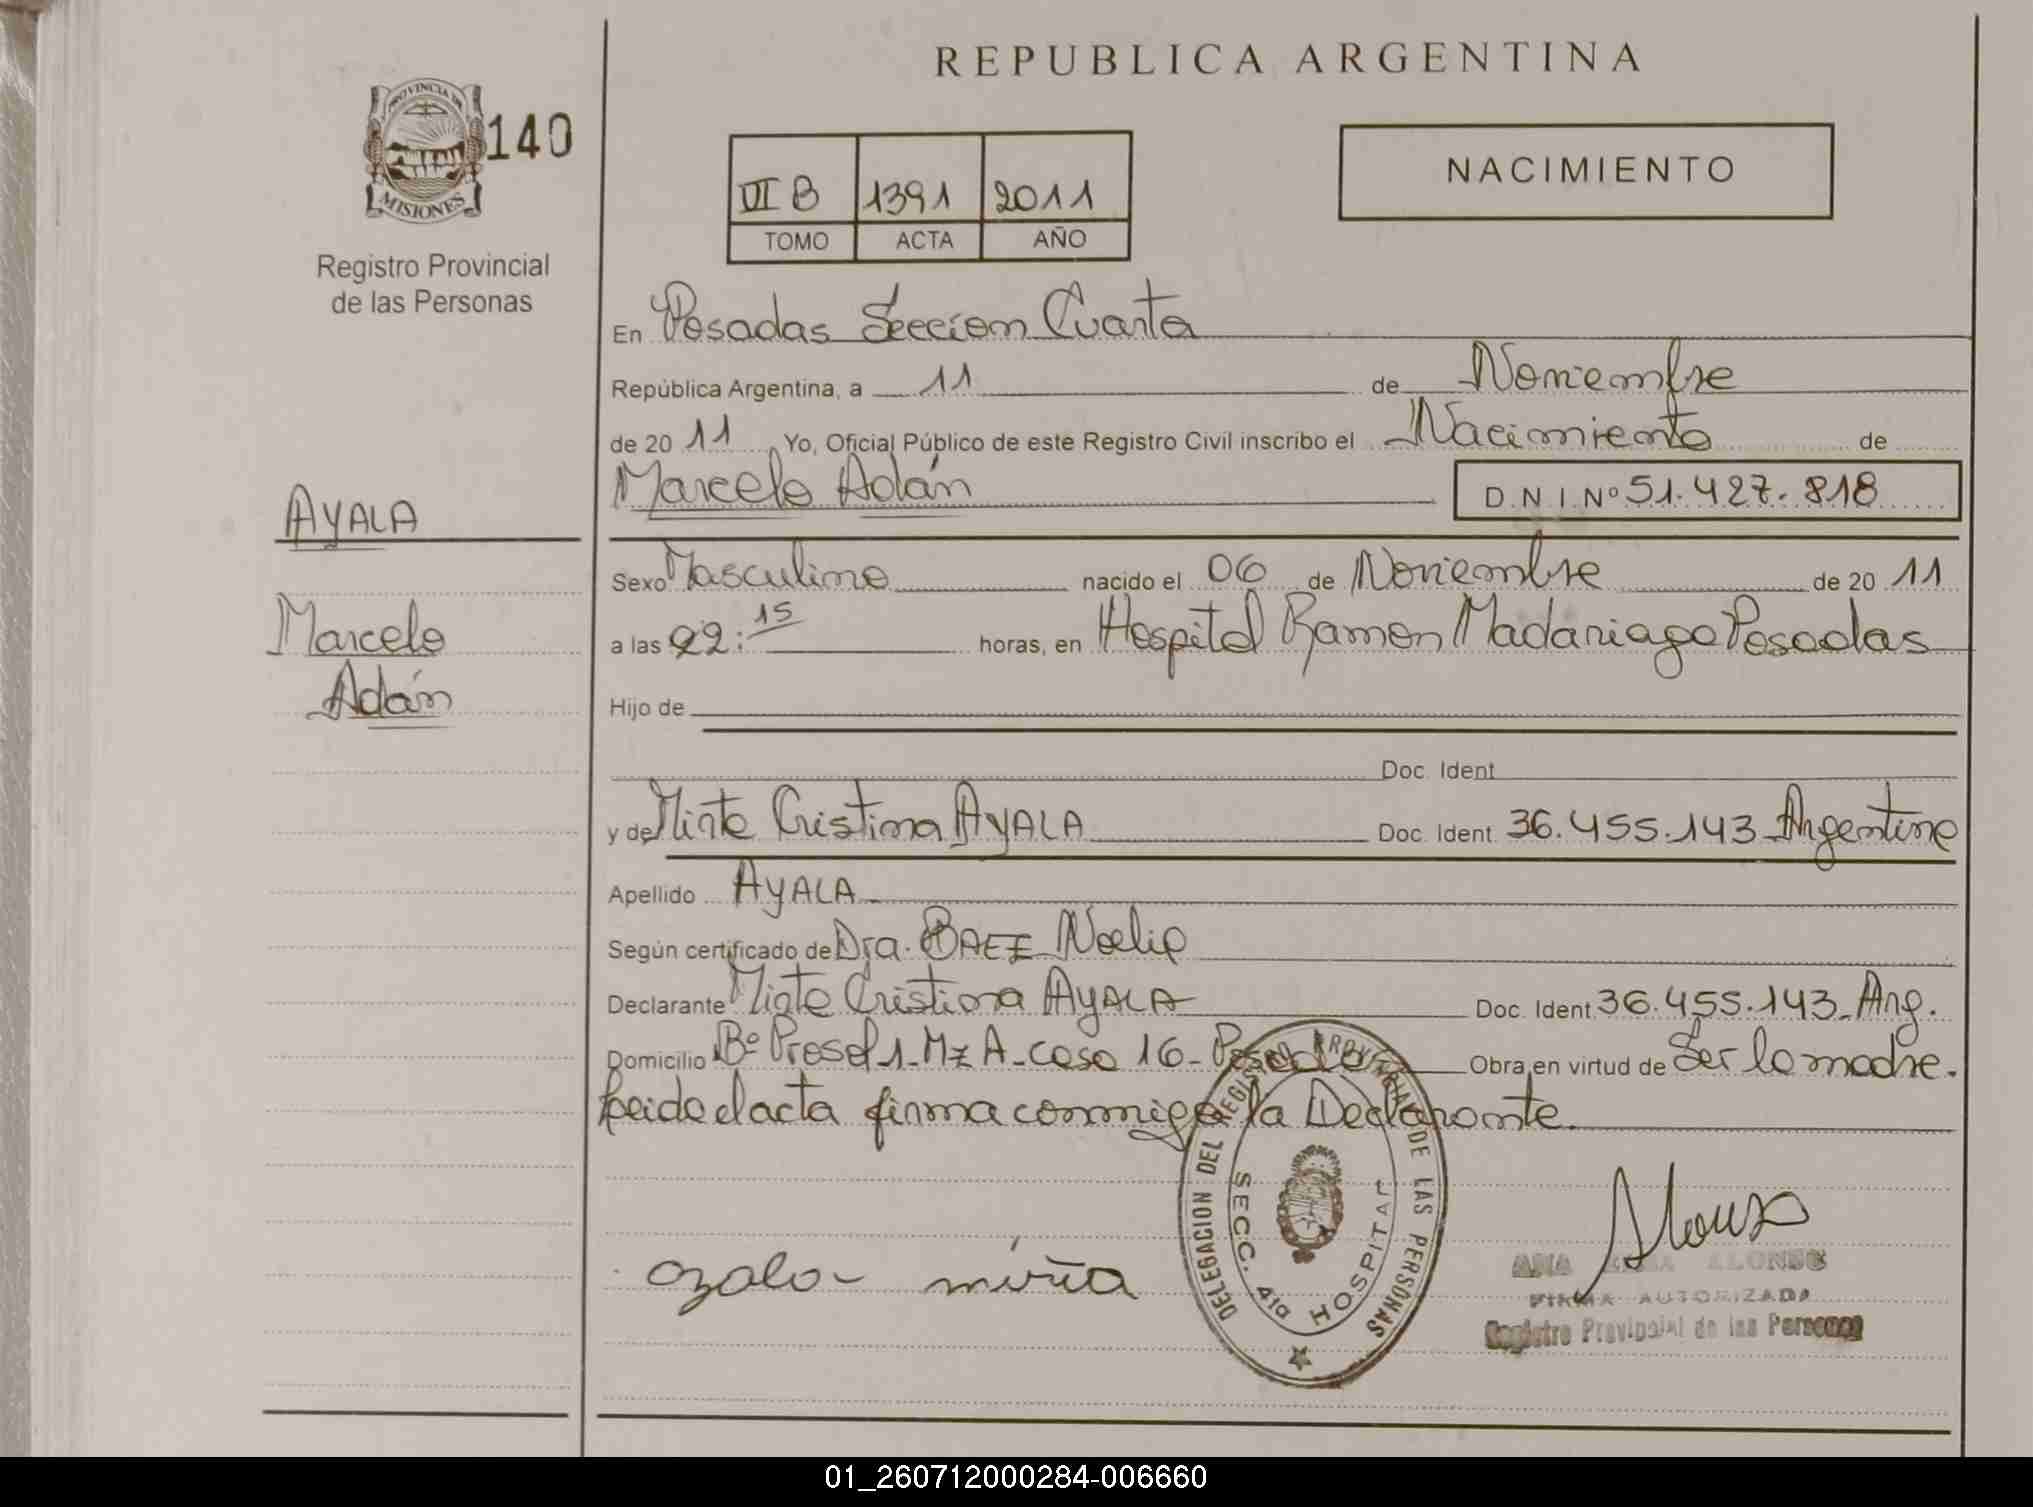 REPUBLICA ARGENTINA
PROVINCIA DE
MISIONES
140
Registro Provincial
de las Personas
NACIMIENTO
VI B 1391 2011
TOMO ACTA AÑO
En Posadas Sección Cuarta
República Argentina, a 11 de Noviembre
de 20 11 Yo, Oficial Público de este Registro Civil inscribo el Nacimiento de
Marcelo Adán D.N.I.Nº 51.427.818
AYALA
Marcelo
Adán
Sexo Masculino nacido el 06 de Noviembre de 20 11
a las 22:15 horas, en Hospital Ramon Madariaga Posadas
Hijo de
Doc. Ident
y de Mirta Cristina AYALA Doc. Ident. 36.455.143 Argentina
Apellido AYALA
Según certificado de Dra. BAEZ Noelia
Declarante Mirta Cristina AYALA Doc. Ident 36.455.143 Arg.
Domicilio Bº Prosol 1 - Mz A - casa 16 - Posadas Obra en virtud de Ser la madre.
Leida el acta firma conmigo la Declarante.
DELEGACION DEL REGISTRO PROVINCIAL DE LAS PERSONAS
SECC. 4ta HOSPITAL
ANA ALONSO
FIRMA AUTORIZADA
Registro Provincial de las Personas
01_260712000284-006660